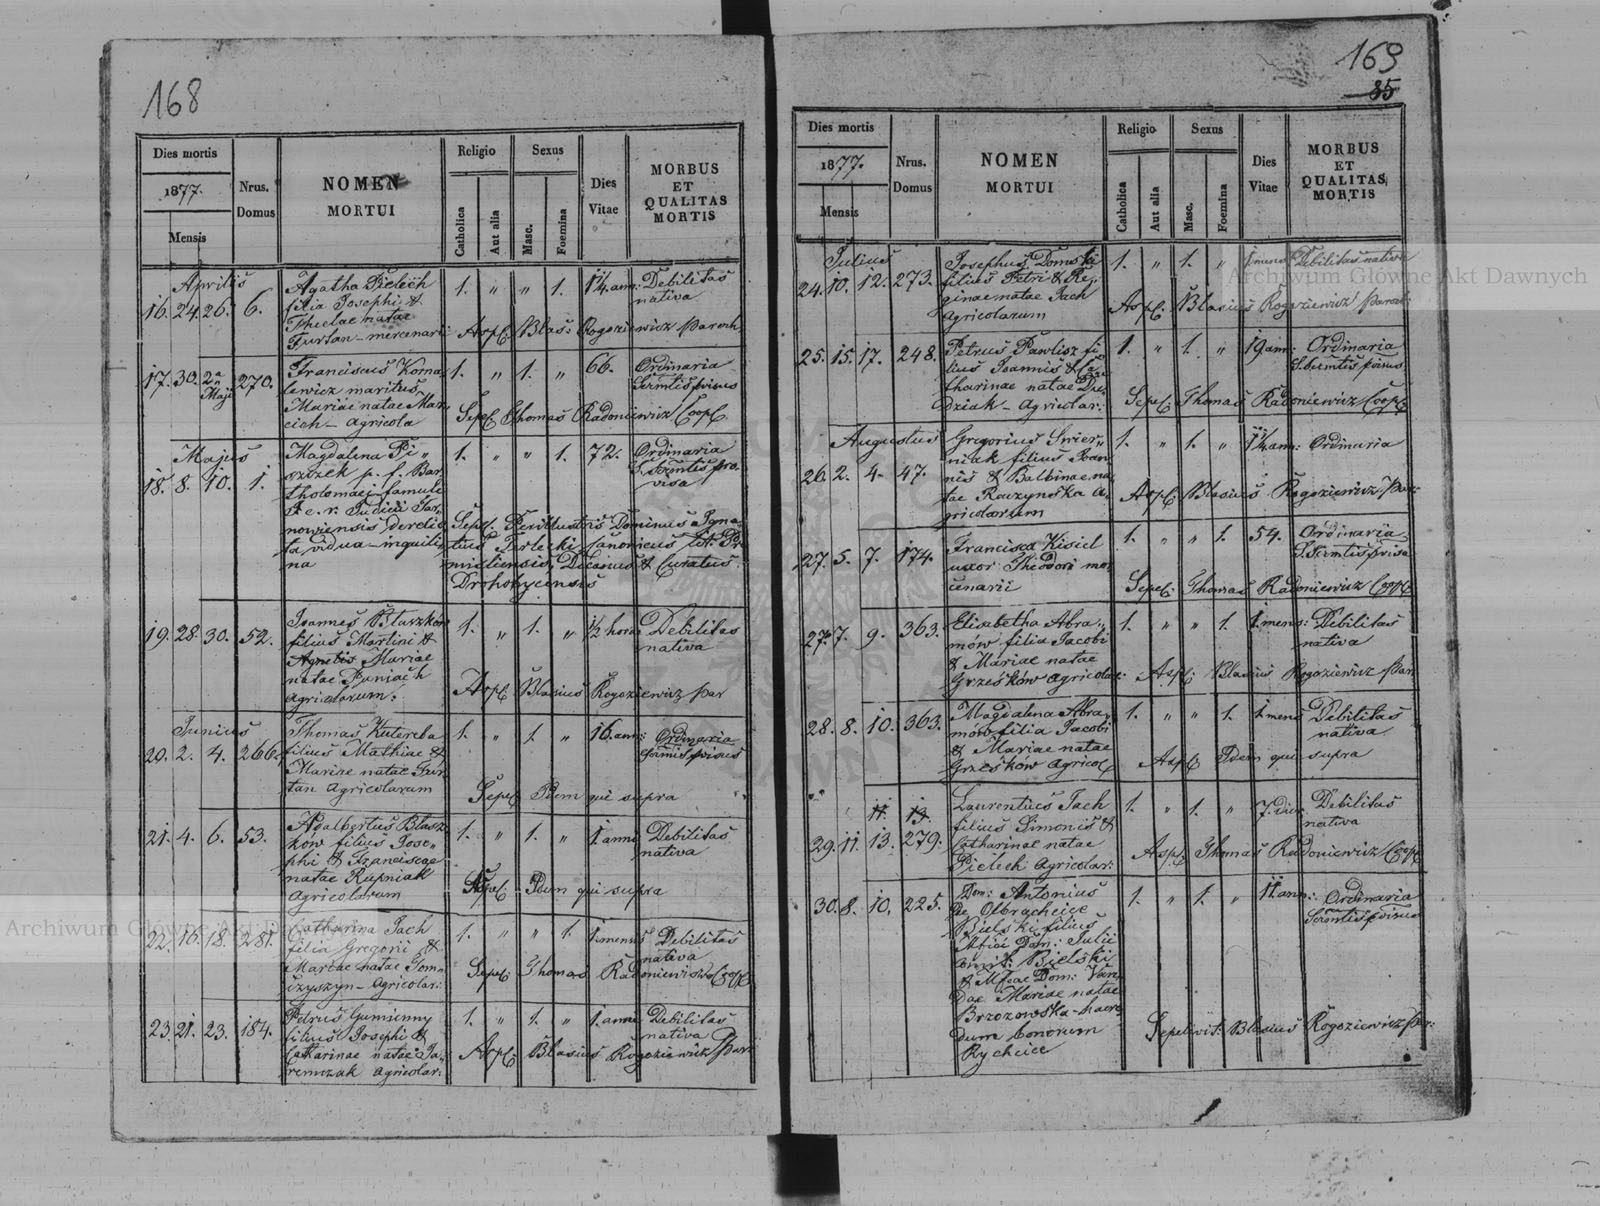 168
Dies mortis
1877.
Mensis
Nrus. Domus
NOMEN
MORTUI
Religio
Catholica
Aut alia
Sexus
Masc.
Foemina
Dies
Vitae
MORBUS
ET
QUALITAS
MORTIS
Aprilis
16. 24. 26. 6. Agatha Pielech 1. „ „ 1. 1¼ ann: Debilitas
filia Josephi & nativa
Theclae natae
Furtan - mercenarii Asp: Blas: Rogoziewicz Paroch
17. 30. 2a Maji 270. Franciscus Korna- 1. „ 1. „ 66. Ordinaria
lewicz maritus
Mariae natae
Agricola Sepel: Thomas Radoniewicz Coop.
Majus
18. 8. 10. 1. Magdalena Pi„ 1. „ „ 1. 72. Ordinaria
szczek p. f. Bar
tholomaei famuli
Judicii Tar
nowiensis derelic
ta vidua - inquili
na
Sepel. Perillustris Dominus Igna-
tius Terlecki Canonicus
Decanus & Curatus
Drohobycensis
19. 28. 30. 52. Joannes 1. „ 1. „ ½ hora Debilitas
filius Martini & nativa
Agnetis Mariae
natae
Agricolarum. Asp: Blasius Rogoziewicz Par
Junius
20. 2. 4. 266. Thomas Kutereba 1. „ 1. „ 16. ann: Ordinaria
filius Mathiae &
Mariae natae Fur
tan Agricolarum Sepel: Idem qui supra
21. 4. 6. 53. Adalbertus Blasz 1. „ 1. „ 1. anni Debilitas
ków filius Jose„ nativa
phi & Franciscae
natae Rupniak
Agricolarum Asp: Idem qui supra
22. 16. 18. 281. Catharina Jach 1. „ „ 1. 1. mensis Debilitas
filia Gregorii & nativa
Mariae natae Tom„
czyszyn - Agricolar: Sepel: Thomas Radoniewicz Coop
23. 21. 23. 184. Petrus Gumienny 1. „ 1. „ 1. anni Debilitas
filius Josephi & nativa
Catharinae natae Ja
remczak Agricolar: Asp: Blasius Rogoziewicz Par:
169
85
Dies mortis
1877.
Mensis
Nrus.
Domus
NOMEN
MORTUI
Religio
Catholica
Aut alia
Sexus
Masc.
Foemina
Dies
Vitae
MORBUS
ET
QUALITAS
MORTIS
Julius
24. 10. 12. 273. Josephus Domski 1. „ 1. „ 1 mens Debilitas nativa
filius Petri & Re„
ginae natae Jach
Agricolarum Asp: Blasius Rogoziewicz Paroch:
25. 15. 17. 248. Petrus Pawlisz fi 1. „ 1. „ 19 ann: Ordinaria
lius Joannis & Ca
tharinae natae Du
dziak - Agricolar: Sepel: Thomas Radoniewicz Coop
Augustus
26. 2. 4. 47. Gregorius Swier„ 1. „ 1. „ 1¼ ann: Ordinaria
niak filius Joan
nis & Balbinae na
tae Raczynska A
gricolarum Asp: Blasius Rogoziewicz Par:
27. 5. 7. 174. Francisca Kisiel 1. „ „ 1. 54. Ordinaria
uxor Theodori mer
cenarii Sepel: Thomas Radoniewicz Coop
27. 7. 9. 363. Elisabetha Abra„ 1. „ „ 1. 1. mens: Debilitas
mów filia Jacobi nativa
& Mariae natae
Grześków Agricolar: Asp: Blasius Rogoziewicz Par
28. 8. 10. 363. Magdalena Abra„ 1. „ „ 1. 1. mens Debilitas
mów filia Jacobi nativa
& Mariae natae
Grześków Agricol Asp: Idem qui supra
11. 13.
29. 11. 13. 279. Laurentius Jach 1. „ 1. „ 7. dier Debilitas
filius Simonis & nativa
Catharinae natae
Pielech Agricolar: Asp: Thomas Radoniewicz Coop
30. 8. 10. 225. Dom: Antonius 1. „ 1. „ 11 ann: Ordinaria
De Olbrachcice
Bielski filius
Mfici Dom: Julii
comit: Bielski
& Mficae Dom: Van
dae Mariae natae
Brzozowska - haere
dum bonorum
Rychcice Sepelivit: Blasius Rogoziewicz Par:
Archiwum Główne Akt Dawnych
Archiwum Główne Akt Dawnych